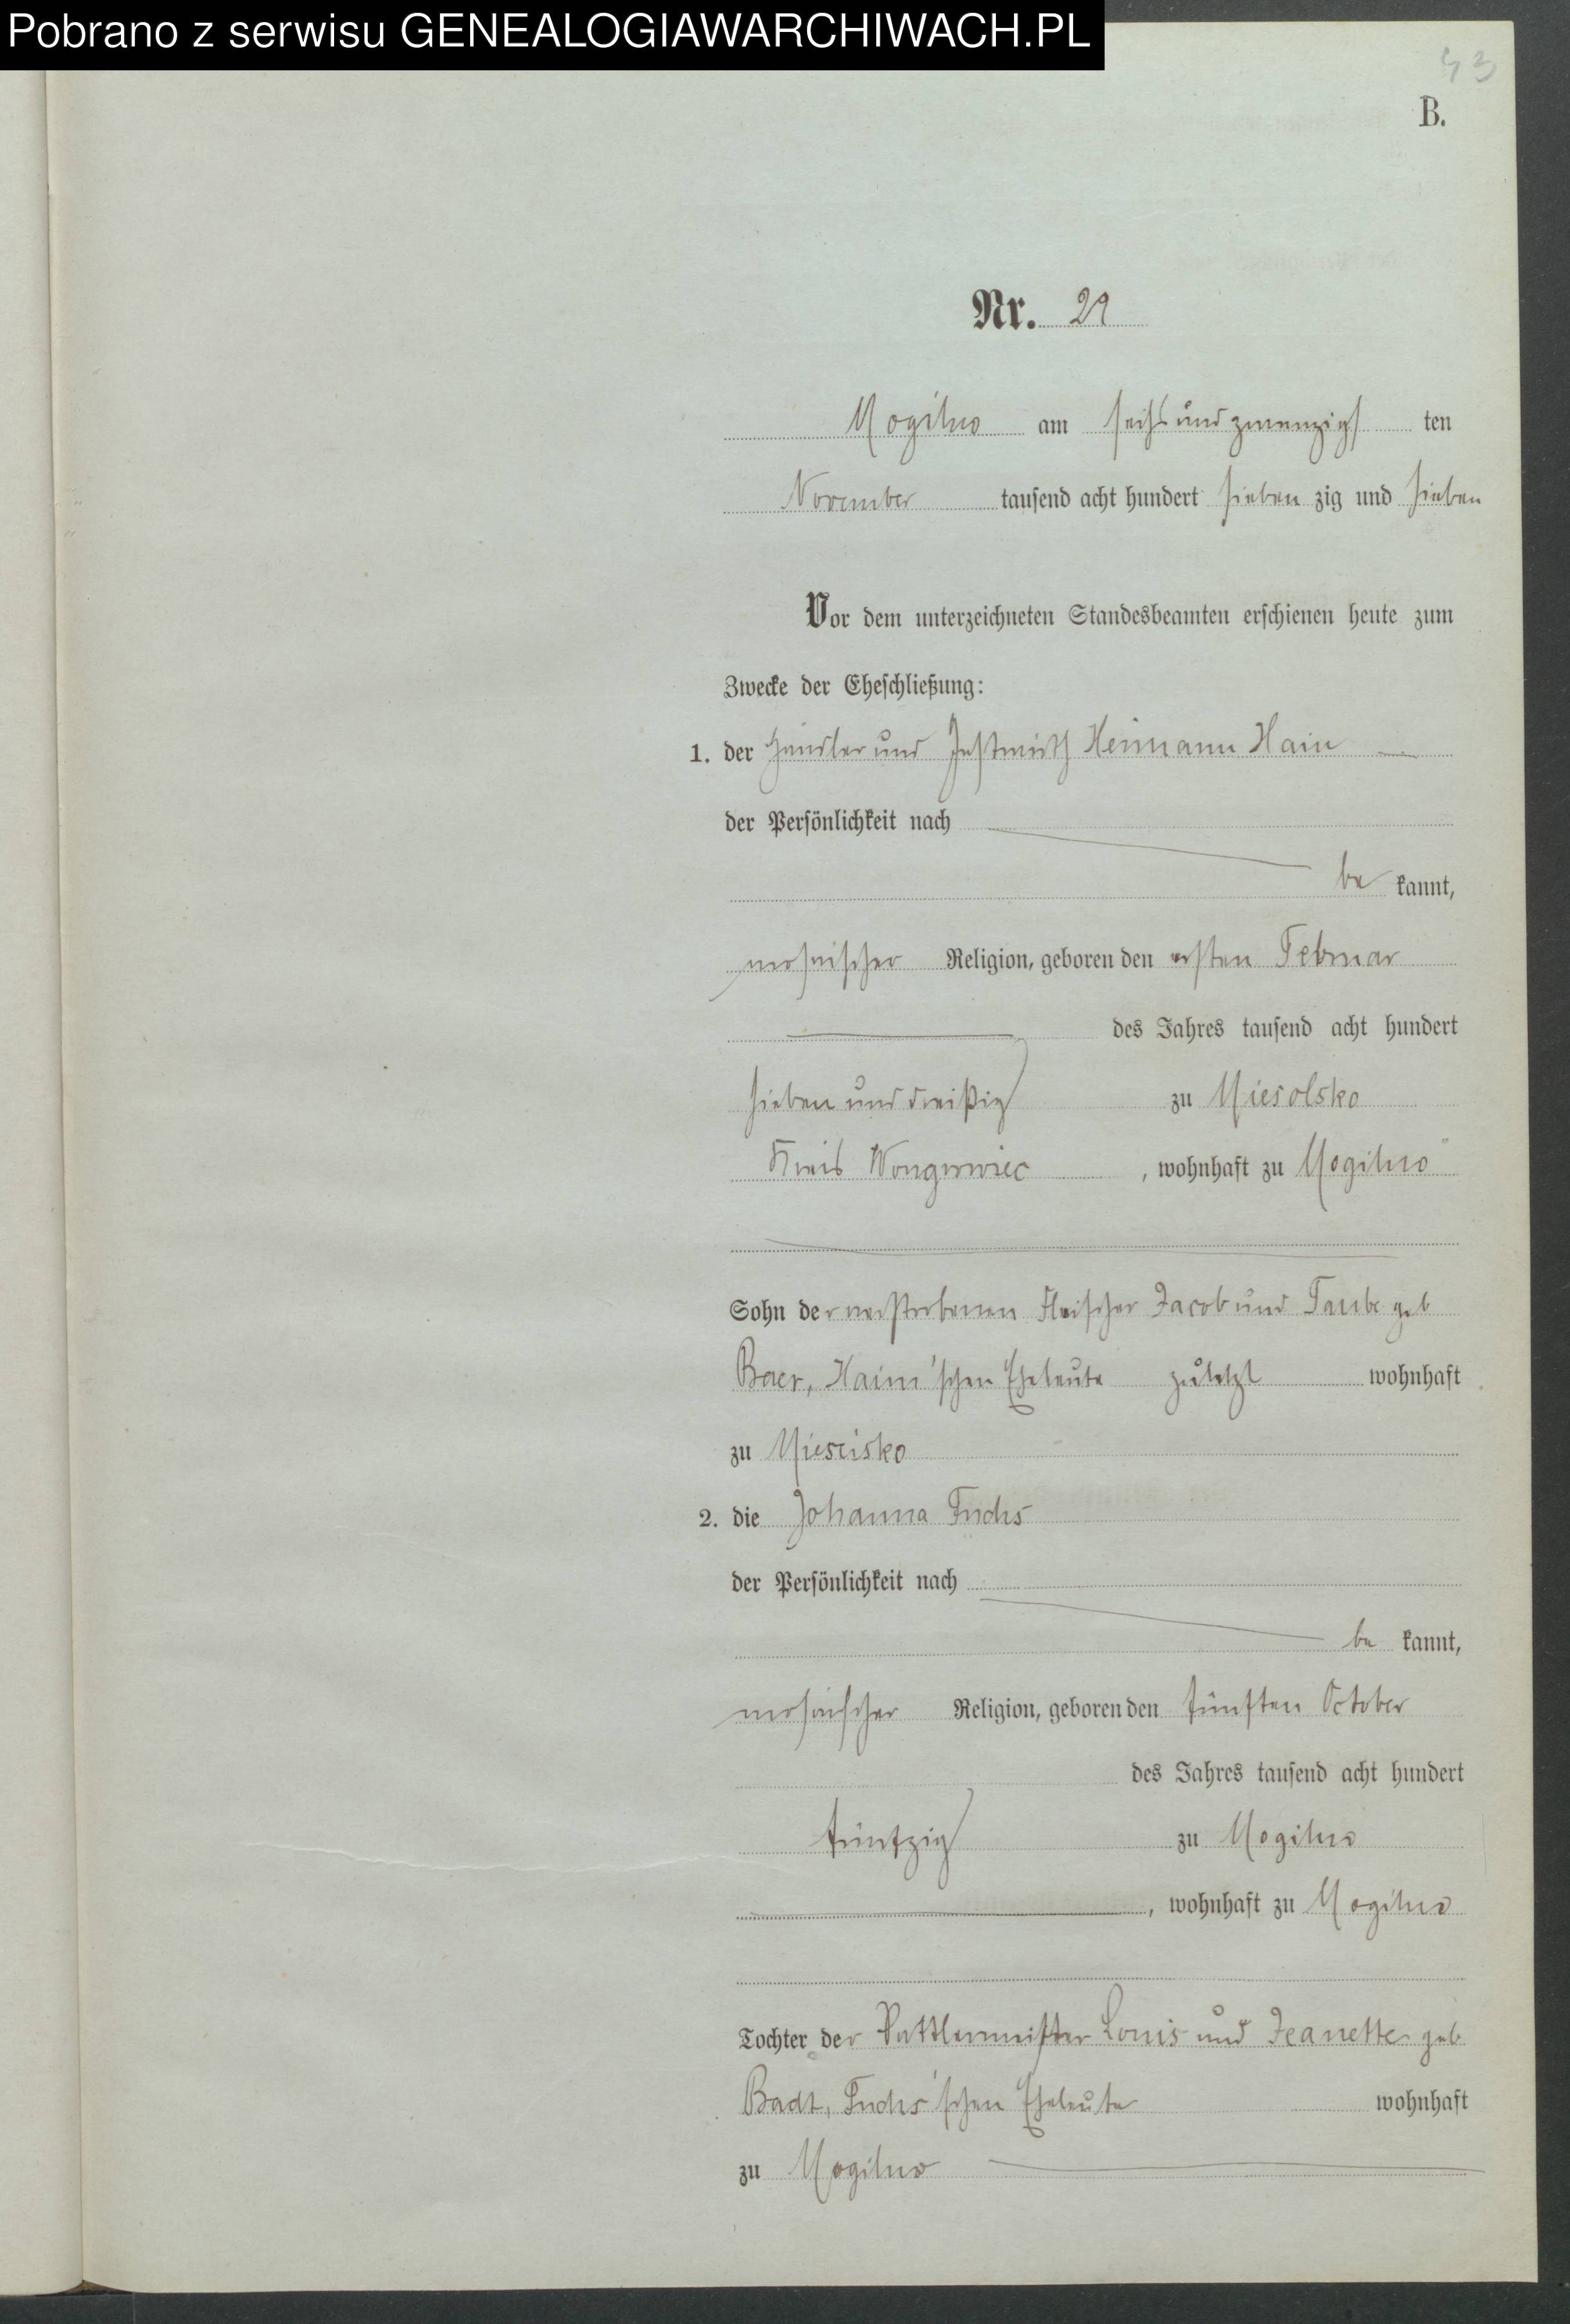 Pobrano z serwisu GENEALOGIAWARCHIWACH.PL
43
B.
Nr. 29
Mogilno am sechs und zwanzigs ten
November tausend acht hundert sieben zig und sieben
Vor dem unterzeichneten Standesbeamten erschienen heute zum
Zwecke der Eheschließung:
1. der Händler und Gastwirth Heimann Haim
der Persönlichkeit nach
be kannt,
mosaischer Religion, geboren den ersten Februar
des Jahres tausend acht hundert
sieben und dreißig zu Miesolsko
Kreis Wongrowiec, wohnhaft zu Mogilno
Sohn der verstorbenen Fleischer Jacob und Taube geb
Baer, Haim'schen Eheleute zuletzt wohnhaft
zu Miescisko
2. die Johanna Fuchs
der Persönlichkeit nach
be kannt,
mosaischer Religion, geboren den fünften October
des Jahres tausend acht hundert
fünfzig zu Mogilno
, wohnhaft zu Mogilno
Tochter der Sattlermeister Louis und Jeanette geb
Badt, Fuchs'schen Eheleute wohnhaft
zu Mogilno